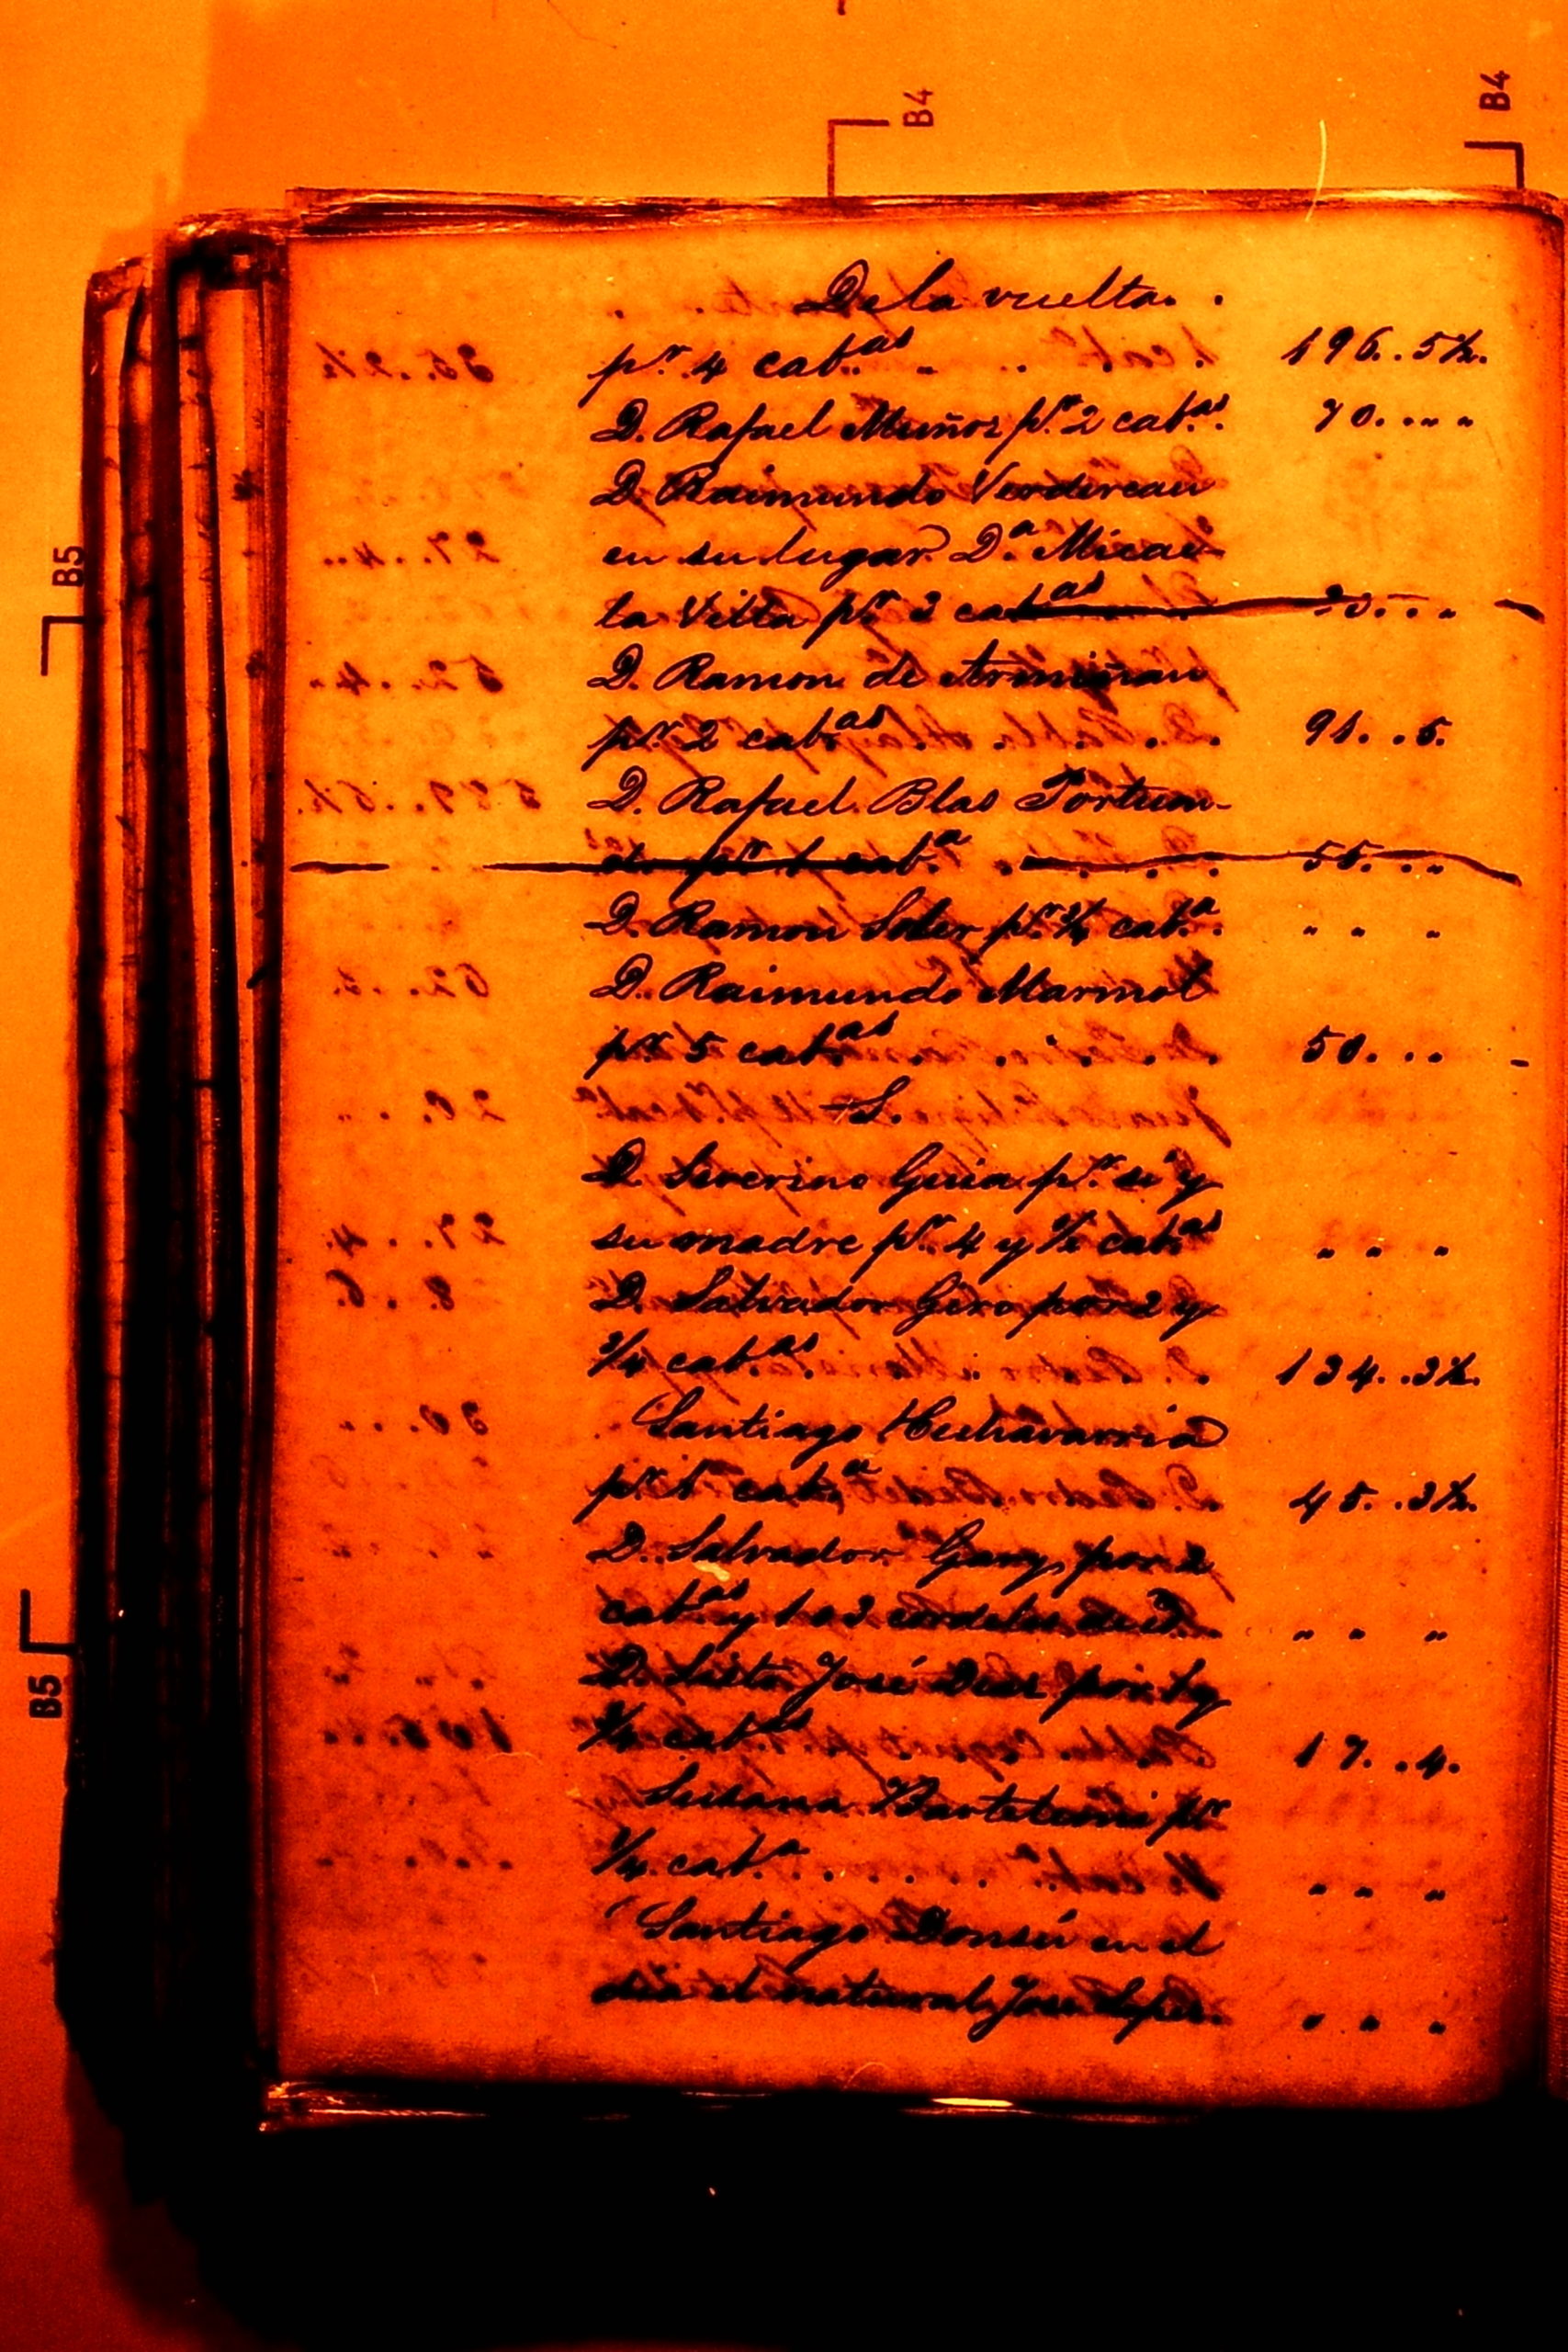 B4
B4
De la vuelta. .
p.r 4 cab.as . . . 196..5½.
D. Rafael Muñoz p.r 2 cab.as. 70.. „ „
D. Raimundo Verdereau
en su lugar D.a Micae
la Villa p.r 2 cab.as
D. Ramon de Arminan
p.r 2 cab.as 91..5.
D. Rafael Blas Fortun-
p.r 1 cab.a . . . . 55.. „
D. Ramon Soler p.r ¾ cab.a. „ „ „
D. Raimundo Marmol
p.r 5 cab.as . . . 50...
S.
D. Severino Guia p.r si y
su madre p.r 4 y ½ cab.as „ „ „
D. Salvador Giro por 2 y
¾ cab.as. . . 134..3½.
Santiago Hechavarria
p.r 1 cab.a 45..3½.
D. Salvador Gary por 2
cab.as y 1 o 2 cordeles de „ „ „
D. Sisto José Dias por 1 y
¾ cab.as 17..4.
Susana Bartelemi p.r
¼ cab.a . . . . . . „ „ „
Santiago Donsú en el
dia el natural José „ „ „
B5
B5